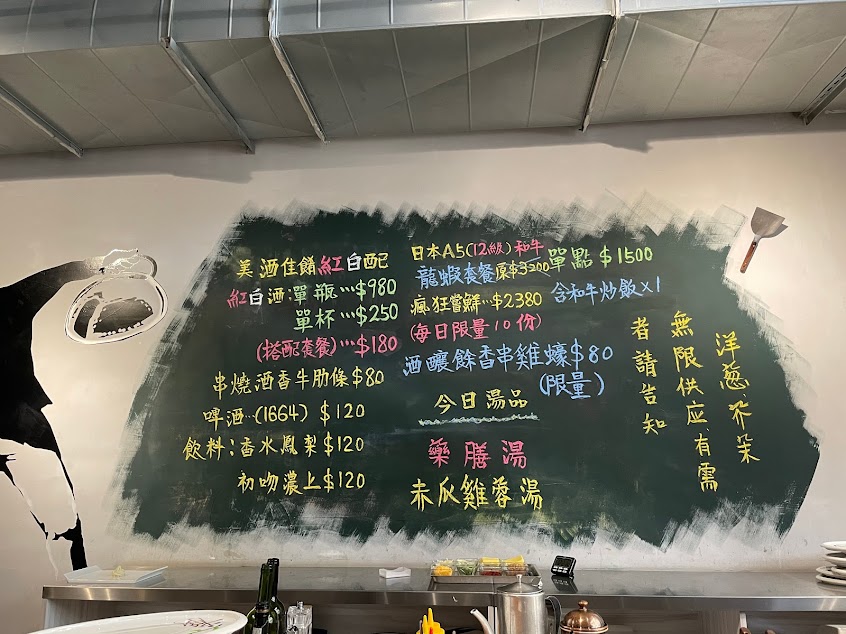 美酒佳餚紅白配
紅白酒:單瓶…$980
單杯…$250
(搭配套餐)…$180
串燒酒香牛肋條$80
啤酒…(1664) $120
飲料:香水鳳梨$120
初吻濃上$120
日本A5(12級)和牛
龍蝦套餐原$3200
單點$1500
瘋狂嘗鮮…$2380
含和牛炒飯×1
(每日限量10份)
酒釀餘香串雞蠔$80
(限量)
今日湯品
藥膳湯
赤瓜雞蓉湯
洋蔥.芥茉
無限供应.有需
者請告知